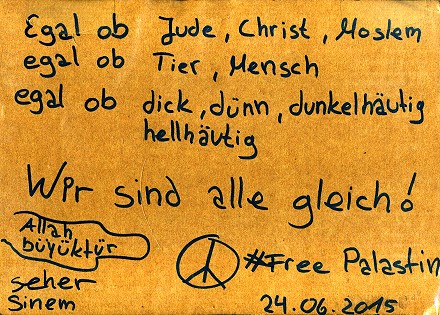 Egal ob Jude, Christ, Moslem
egal ob Tier, Mensch
egal ob dick, dünn, dunkelhäutig
hellhäutig
Wir sind alle gleich!
Allah
büyüktür
#Free Palastin
seher
Sinem
24.06.2015